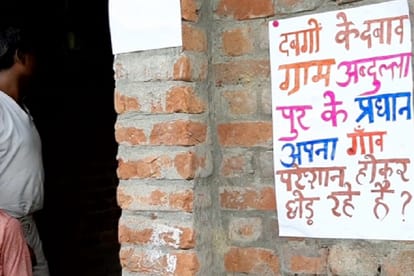 दबगों के दबाव
ग्राम अब्दुल्ला
पुर के प्रधान
अपना गाँव
परेशान होकर
छोड़ रहे है ?